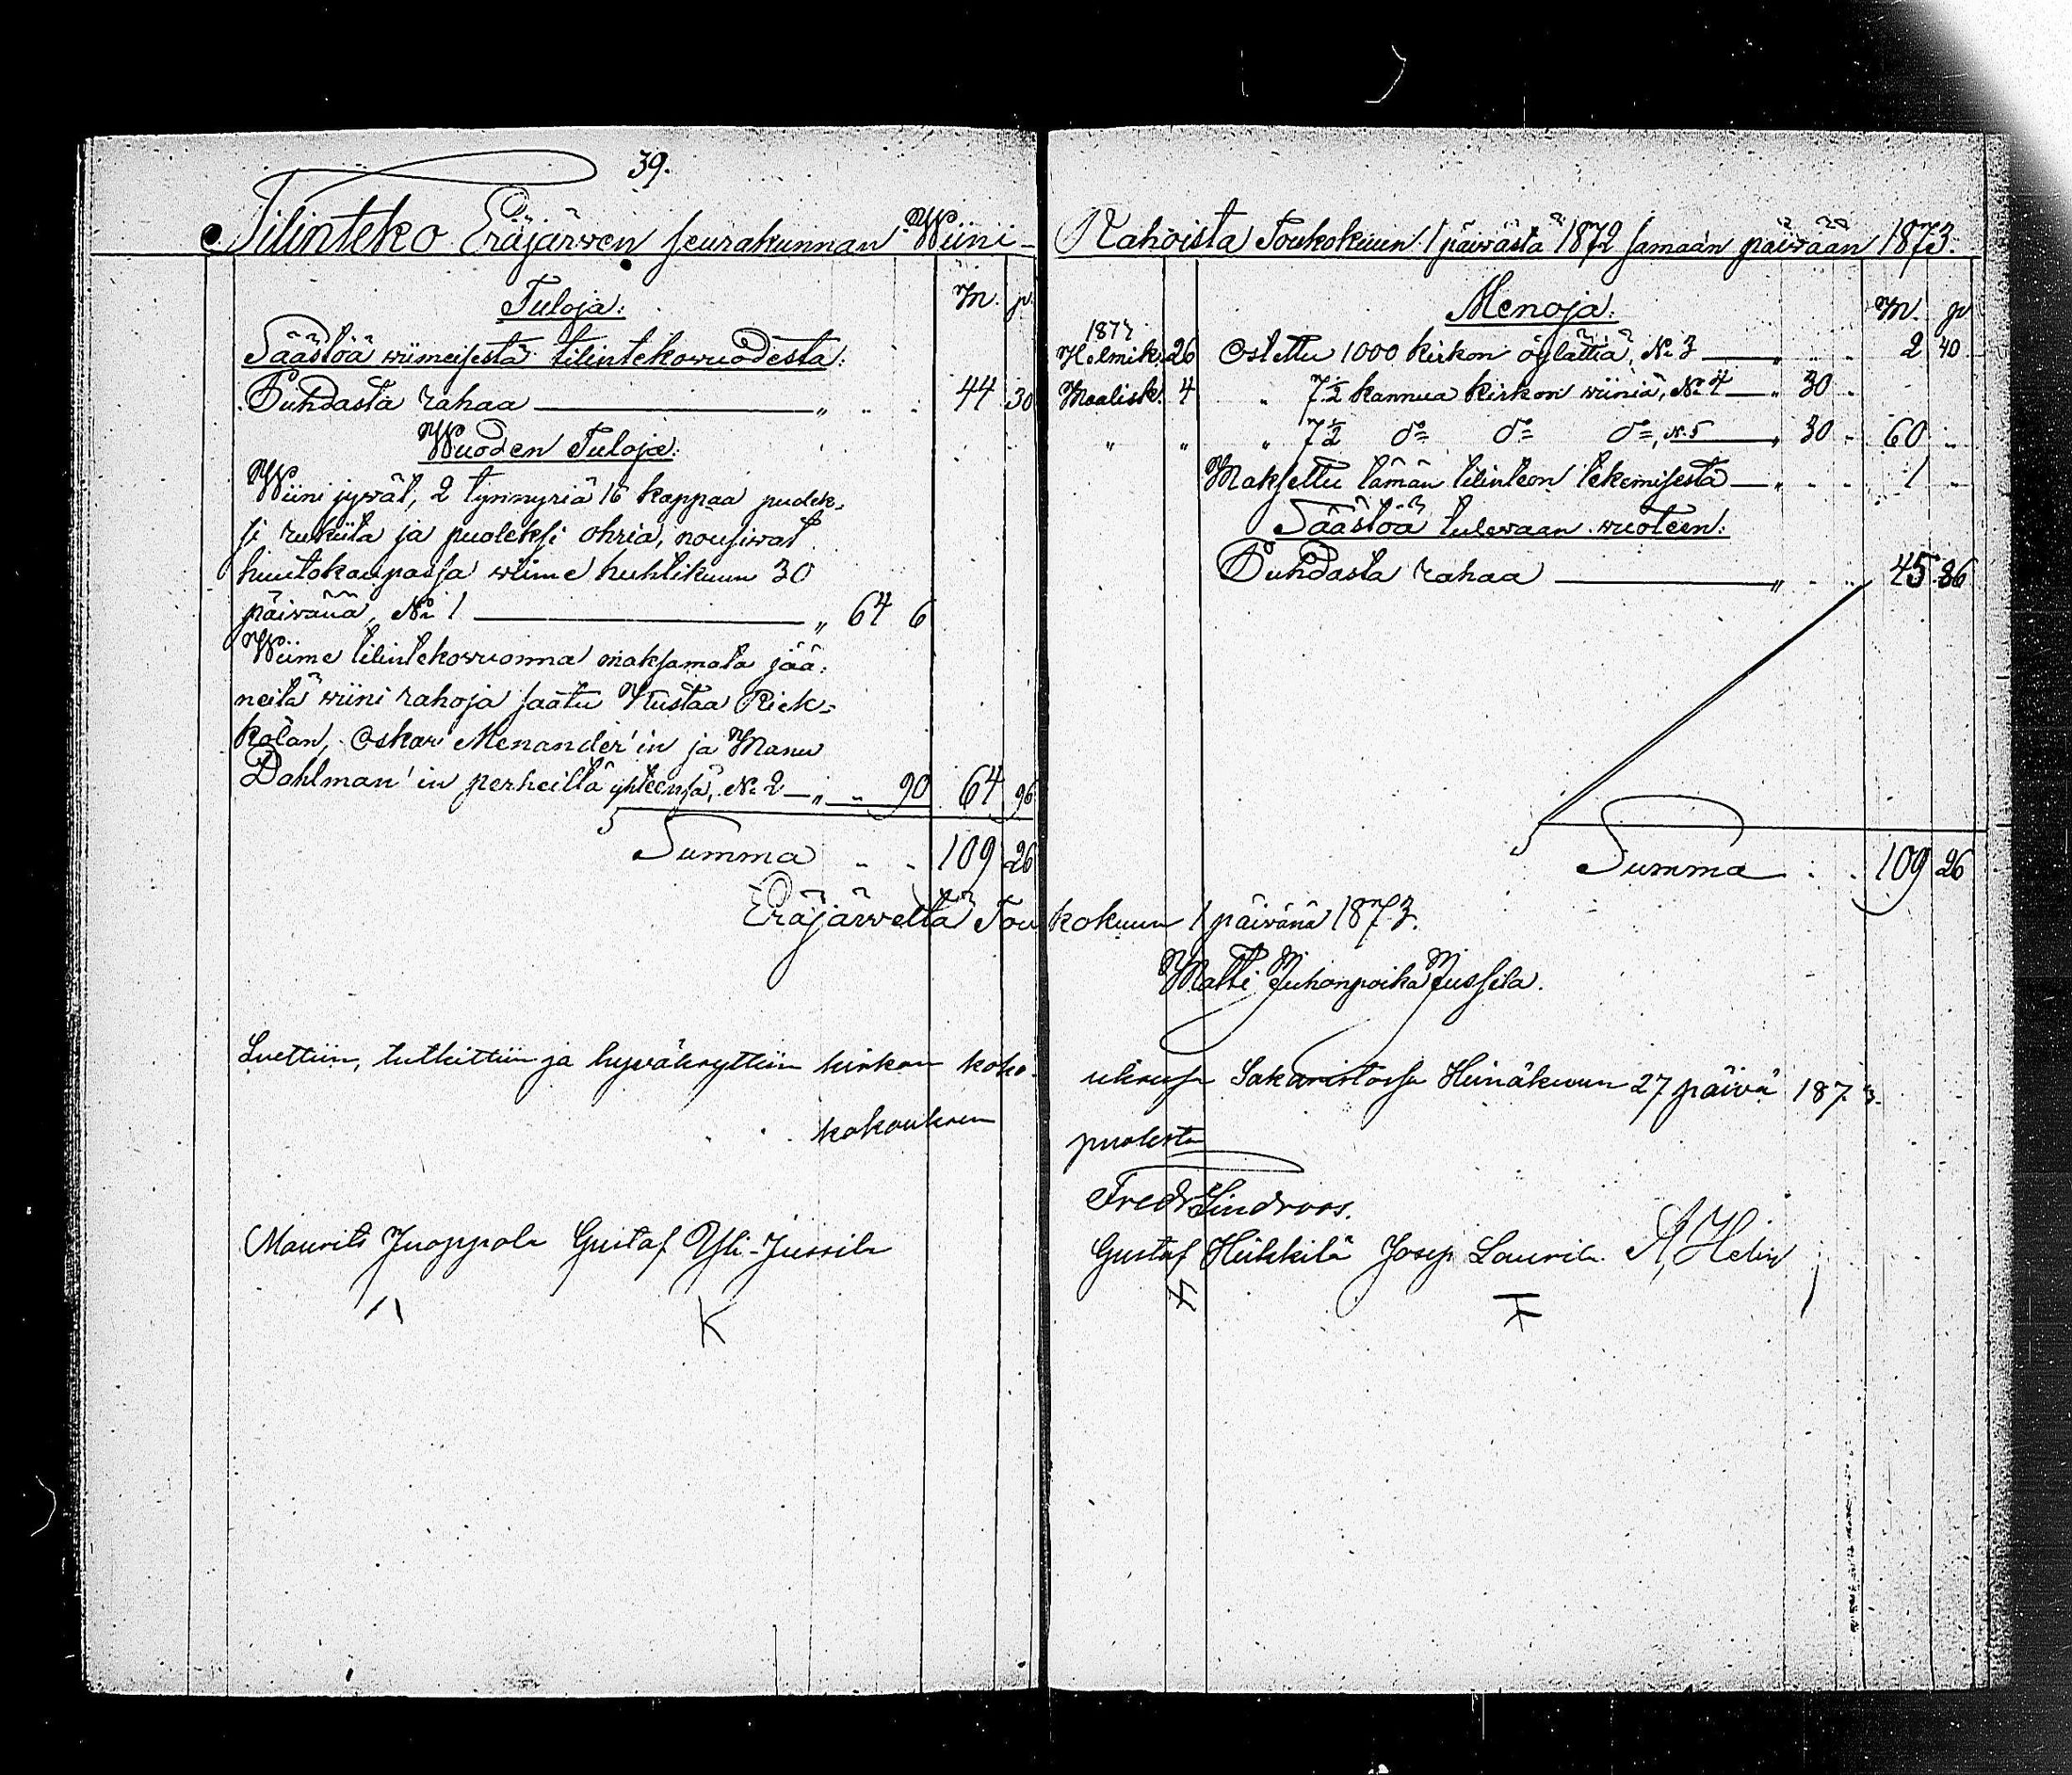 39.
Tilinteko Eräjärwen seurakunnan Wiini-
Tuloja:
M. p.
Säästöä wiimeisestä tilintekowuodesta:
Puhdasta rahaa — „ „ „ 44 30
Wuoden Tuloja:
Wiini jywät, 2 tynnyriä 16 kappaa puolek-
si rukiita ja puoleksi ohria, nousiwat
huutokaupassa wiime huhtikuun 30
päiwänä, No 1 — „ 64 6
Wiime tilintekowuonna maksamata jää-
neitä wiini rahoja saatu Kustaa Riek-
kolan, Oskar Menander'in ja Manu
Dahlman'in perheiltä yhteensä, No 2 — „ „ 90 64 96
Summa „ „ 109 26
Rahoista Toukokuun 1 päiwästä 1872 samaan päiwään 1873.
Menoja:
M. p
1873
Helmik. 26 Ostettu 1000 kirkon öylättiä, No 3 — „ „ „ 2 40
Maalisk. 4 „ 7½ kannua kirkon wiiniä, No 4 — „ 30 „
„ „ „ 7½ do do do, N. 5 — „ 30 „ 60 „
Maksettu tämän tilinteon tekemisestä — „ „ „ 1 „
Säästöä tulewaan wuoteen:
Puhdasta rahaa — „ „ „ 45 86
Summa „ „ 109 26
Eräjärweltä Toukokuun 1 päiwänä 1873.
Matti Juhanpoika Jussila.
Luettiin, tutkittiin ja hyväksyttiin kirkon koko-
uksessa Sakaristossa Heinäkuun 27 päivä 1873.
kokouksen puolesta
Fredr Lindroos.
Maurits Juoppola Gustaf Yli-Jussila
Gustaf Heikkilä Josep Laurila A, Helin
K